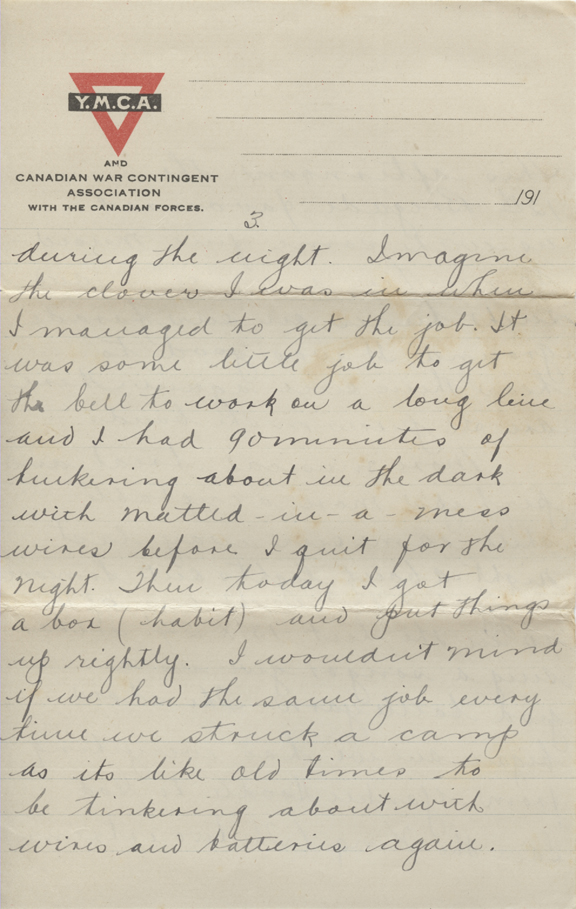 Y.M.C.A.
AND
CANADIAN WAR CONTINGENT
ASSOCIATION
WITH THE CANADIAN FORCES.
191
3.
during the night. Imagine
the clover I was in when
I managed to get the job. It
was some little job to get
the bell to work on a long line
and I had 90 minutes of
tinkering about in the dark
with matted-in-a-mess
wires before I quit for the
night. Then today I got
a box (habit) and put things
up rightly. I wouldn't mind
if we had the same job every
time we struck a camp
as its like old times to
be tinkering about with
wires and batteries again.